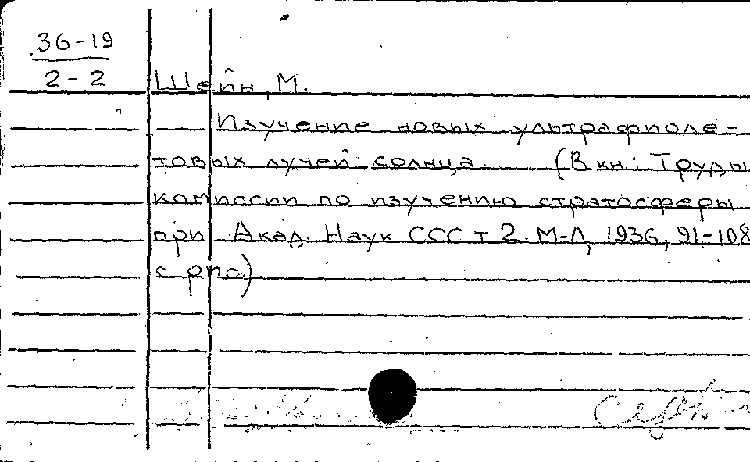 36-19
2-2
Шейн, М.
Изучение новых ультрафиоле-
товых лучей солнца. (В кн: Труды
комиссии по изучению стратосферы
при Акад. Наук ССС т 2. М-Л, 1936, 91-108
с рис)